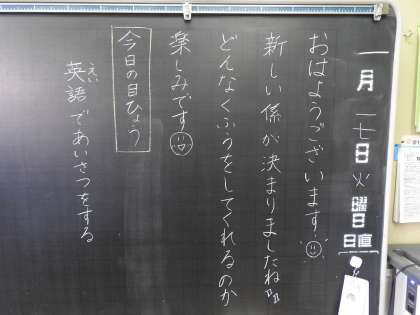 一月一七日火曜日
日直
おはようございます。
新しい係が決まりましたね。
どんなくふうをしてくれるのか
楽しみです。
今日の目ひょう
英語であいさつをする
えい